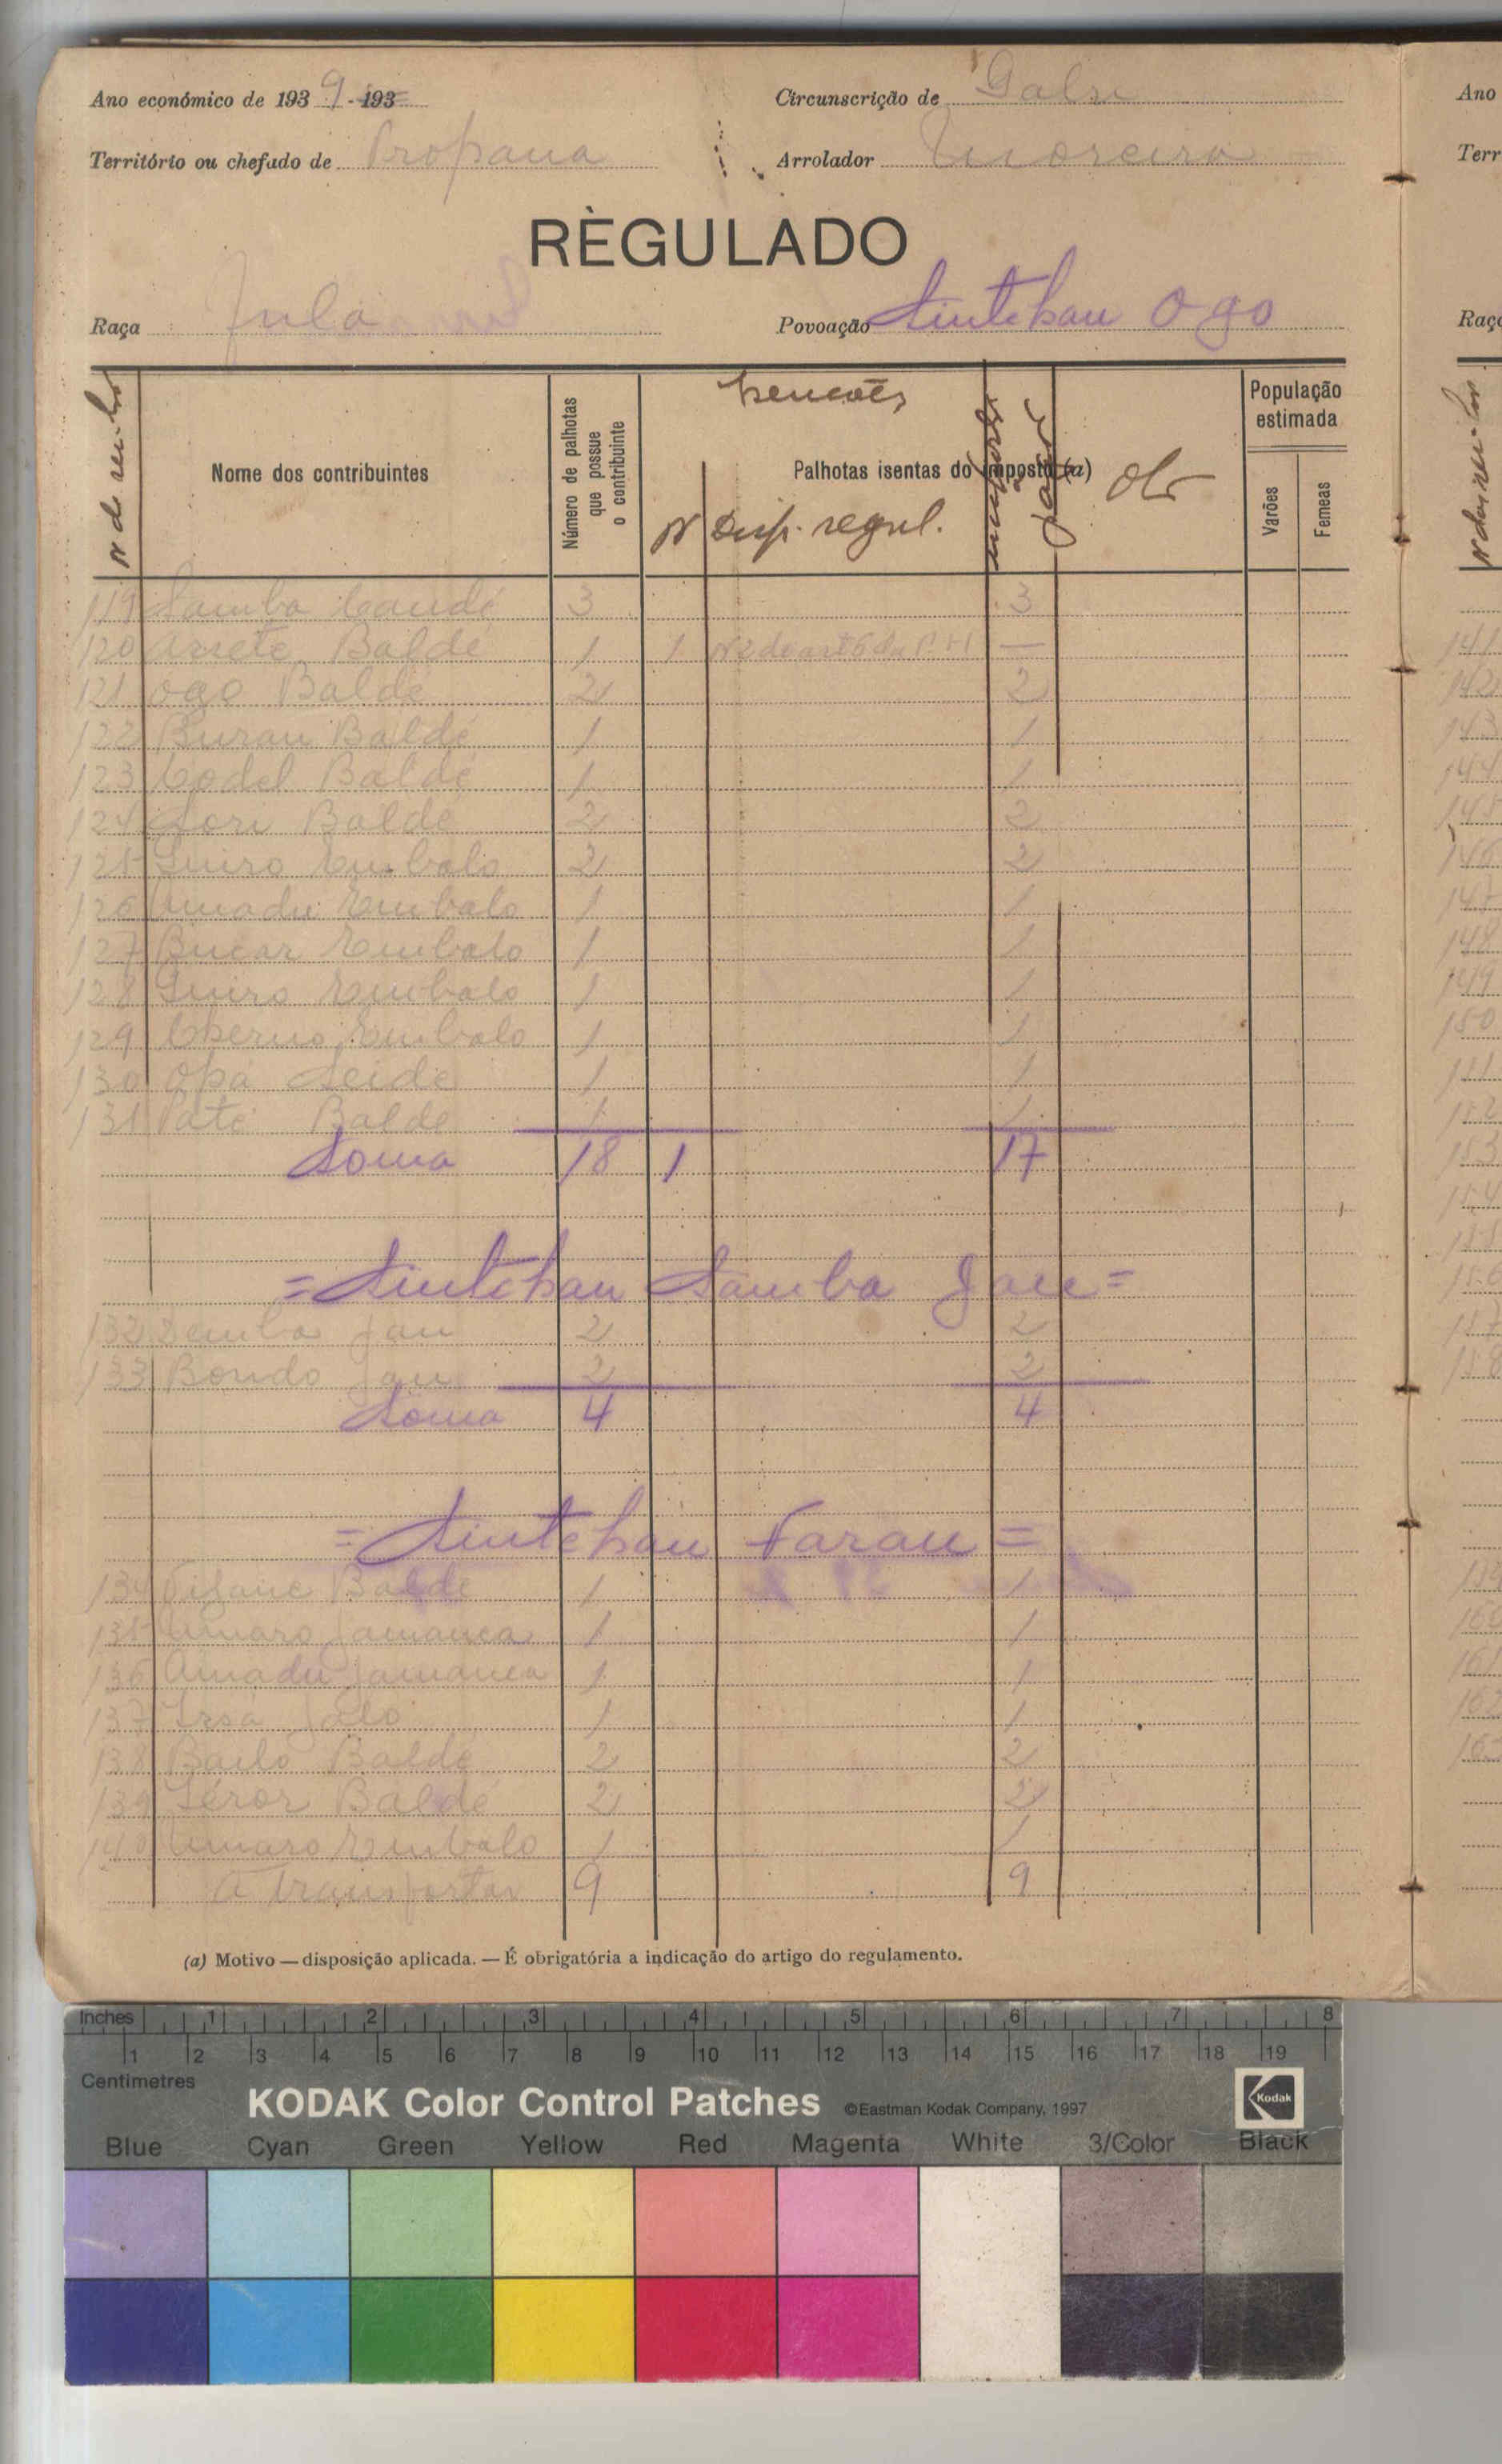 Ano económico de 1939-193
Circunscrição de Gabu
Território ou chefado de Propana
Arrolador Moreira
RÈGULADO
Raça Fula
Povoação Sintchau Ogo
Nome dos contribuintes
Número de palhotas que possue o contribuinte
Isenções
Palhotas isentas do imposto (a)
N Disp. regul.
Obs
População estimada
Varões
Femeas
119 Samba Candé 3 3
120 Balde 1 1 N 2 do art 6 do —
121 Ogo Balde 2 2
122 Burau Balde 1 1
123 Codel Balde 1 1
124 Sori Balde 2 2
125 Embalo 2 2
126 Amadu Embalo 1 1
127 Bucar Embalo 1 1
128 Embalo 1 1
129 Cherno Embalo 1 1
130 Opa Seide 1 1
131 Pate Balde 1 1
Soma 18 1 17
= Sintchau Samba Jau =
132 Demba Jau 2 2
133 Bondo Jau 2 2
Soma 4 4
= Sintchau Farau =
134 Tijane Balde 1 1
135 Umaro Jamanca 1 1
136 Amadu Jamanca 1 1
137 Jaló 1 1
138 Bailo Baldé 2 2
139 Baldé 2 2
140 Umaro Embalo 1 1
A Transportar 9 9
(a) Motivo — disposição aplicada. — É obrigatória a indicação do artigo do regulamento.
Ano
Terr
Raça
Inches 1 2 3 4 5 6 7 8
1 2 3 4 5 6 7 8 9 10 11 12 13 14 15 16 17 18 19
Centimetres
KODAK Color Control Patches ©Eastman Kodak Company, 1997 Kodak
Blue Cyan Green Yellow Red Magenta White 3/Color Black